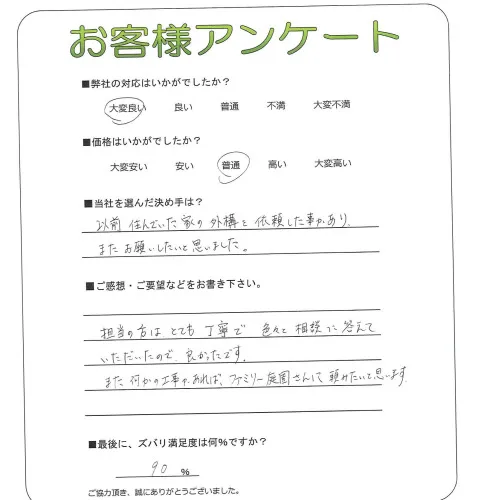 お客様アンケート
■弊社の対応はいかがでしたか?
大変良い 良い 普通 不満 大変不満
■価格はいかがでしたか?
大変安い 安い 普通 高い 大変高い
■当社を選んだ決め手は?
以前 住んでいた 家の 外構を 依頼した事があり、
また お願いしたいと思いました。
■ご感想・ご要望などをお書き下さい。
担当の方は とても 丁寧で 色々と 相談に 答えて
いただいたので 良かったです。
また 何かの工事があれば、ファミリー庭園さんに 頼みたいと思います
■最後に、ズバリ満足度は何%ですか?
90 %
ご協力頂き、誠にありがとうございました。